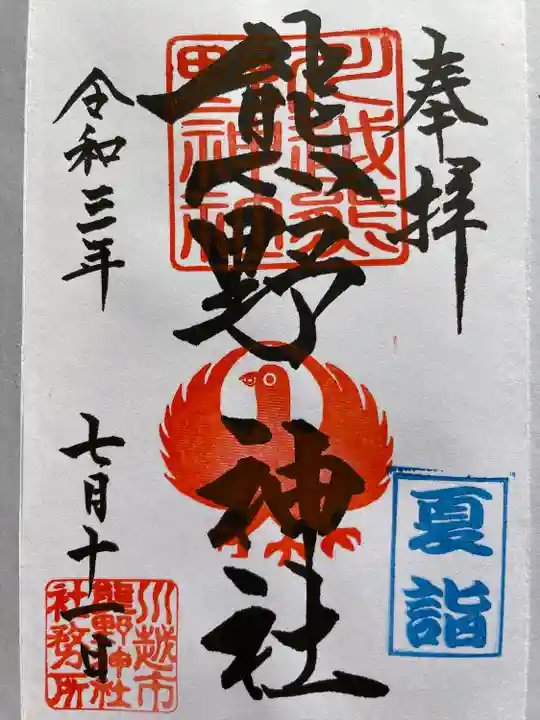 奉拝
夏詣
川越熊野神社
熊野神社
令和三年
七月十一日
川越市
熊野神社
社務所